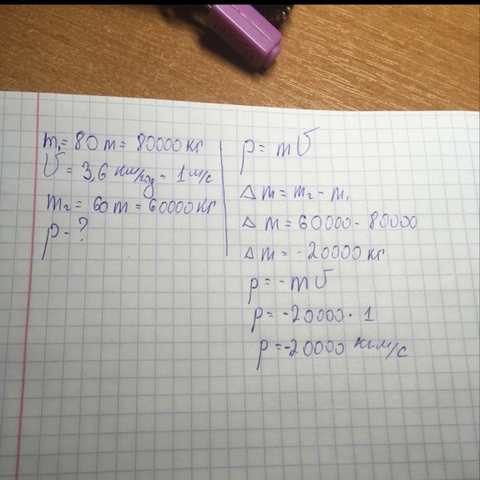 m₁ = 80 т = 80000 кг
υ = 3,6 км/год = 1 м/с
m₂ = 60 т = 60000 кг
p - ?
p = m υ
Δ m = m₂ - m₁
Δ m = 60000 - 80000
Δ m = -20000 кг
p = -m υ
p = -20000 · 1
p = -20000 кг м/с